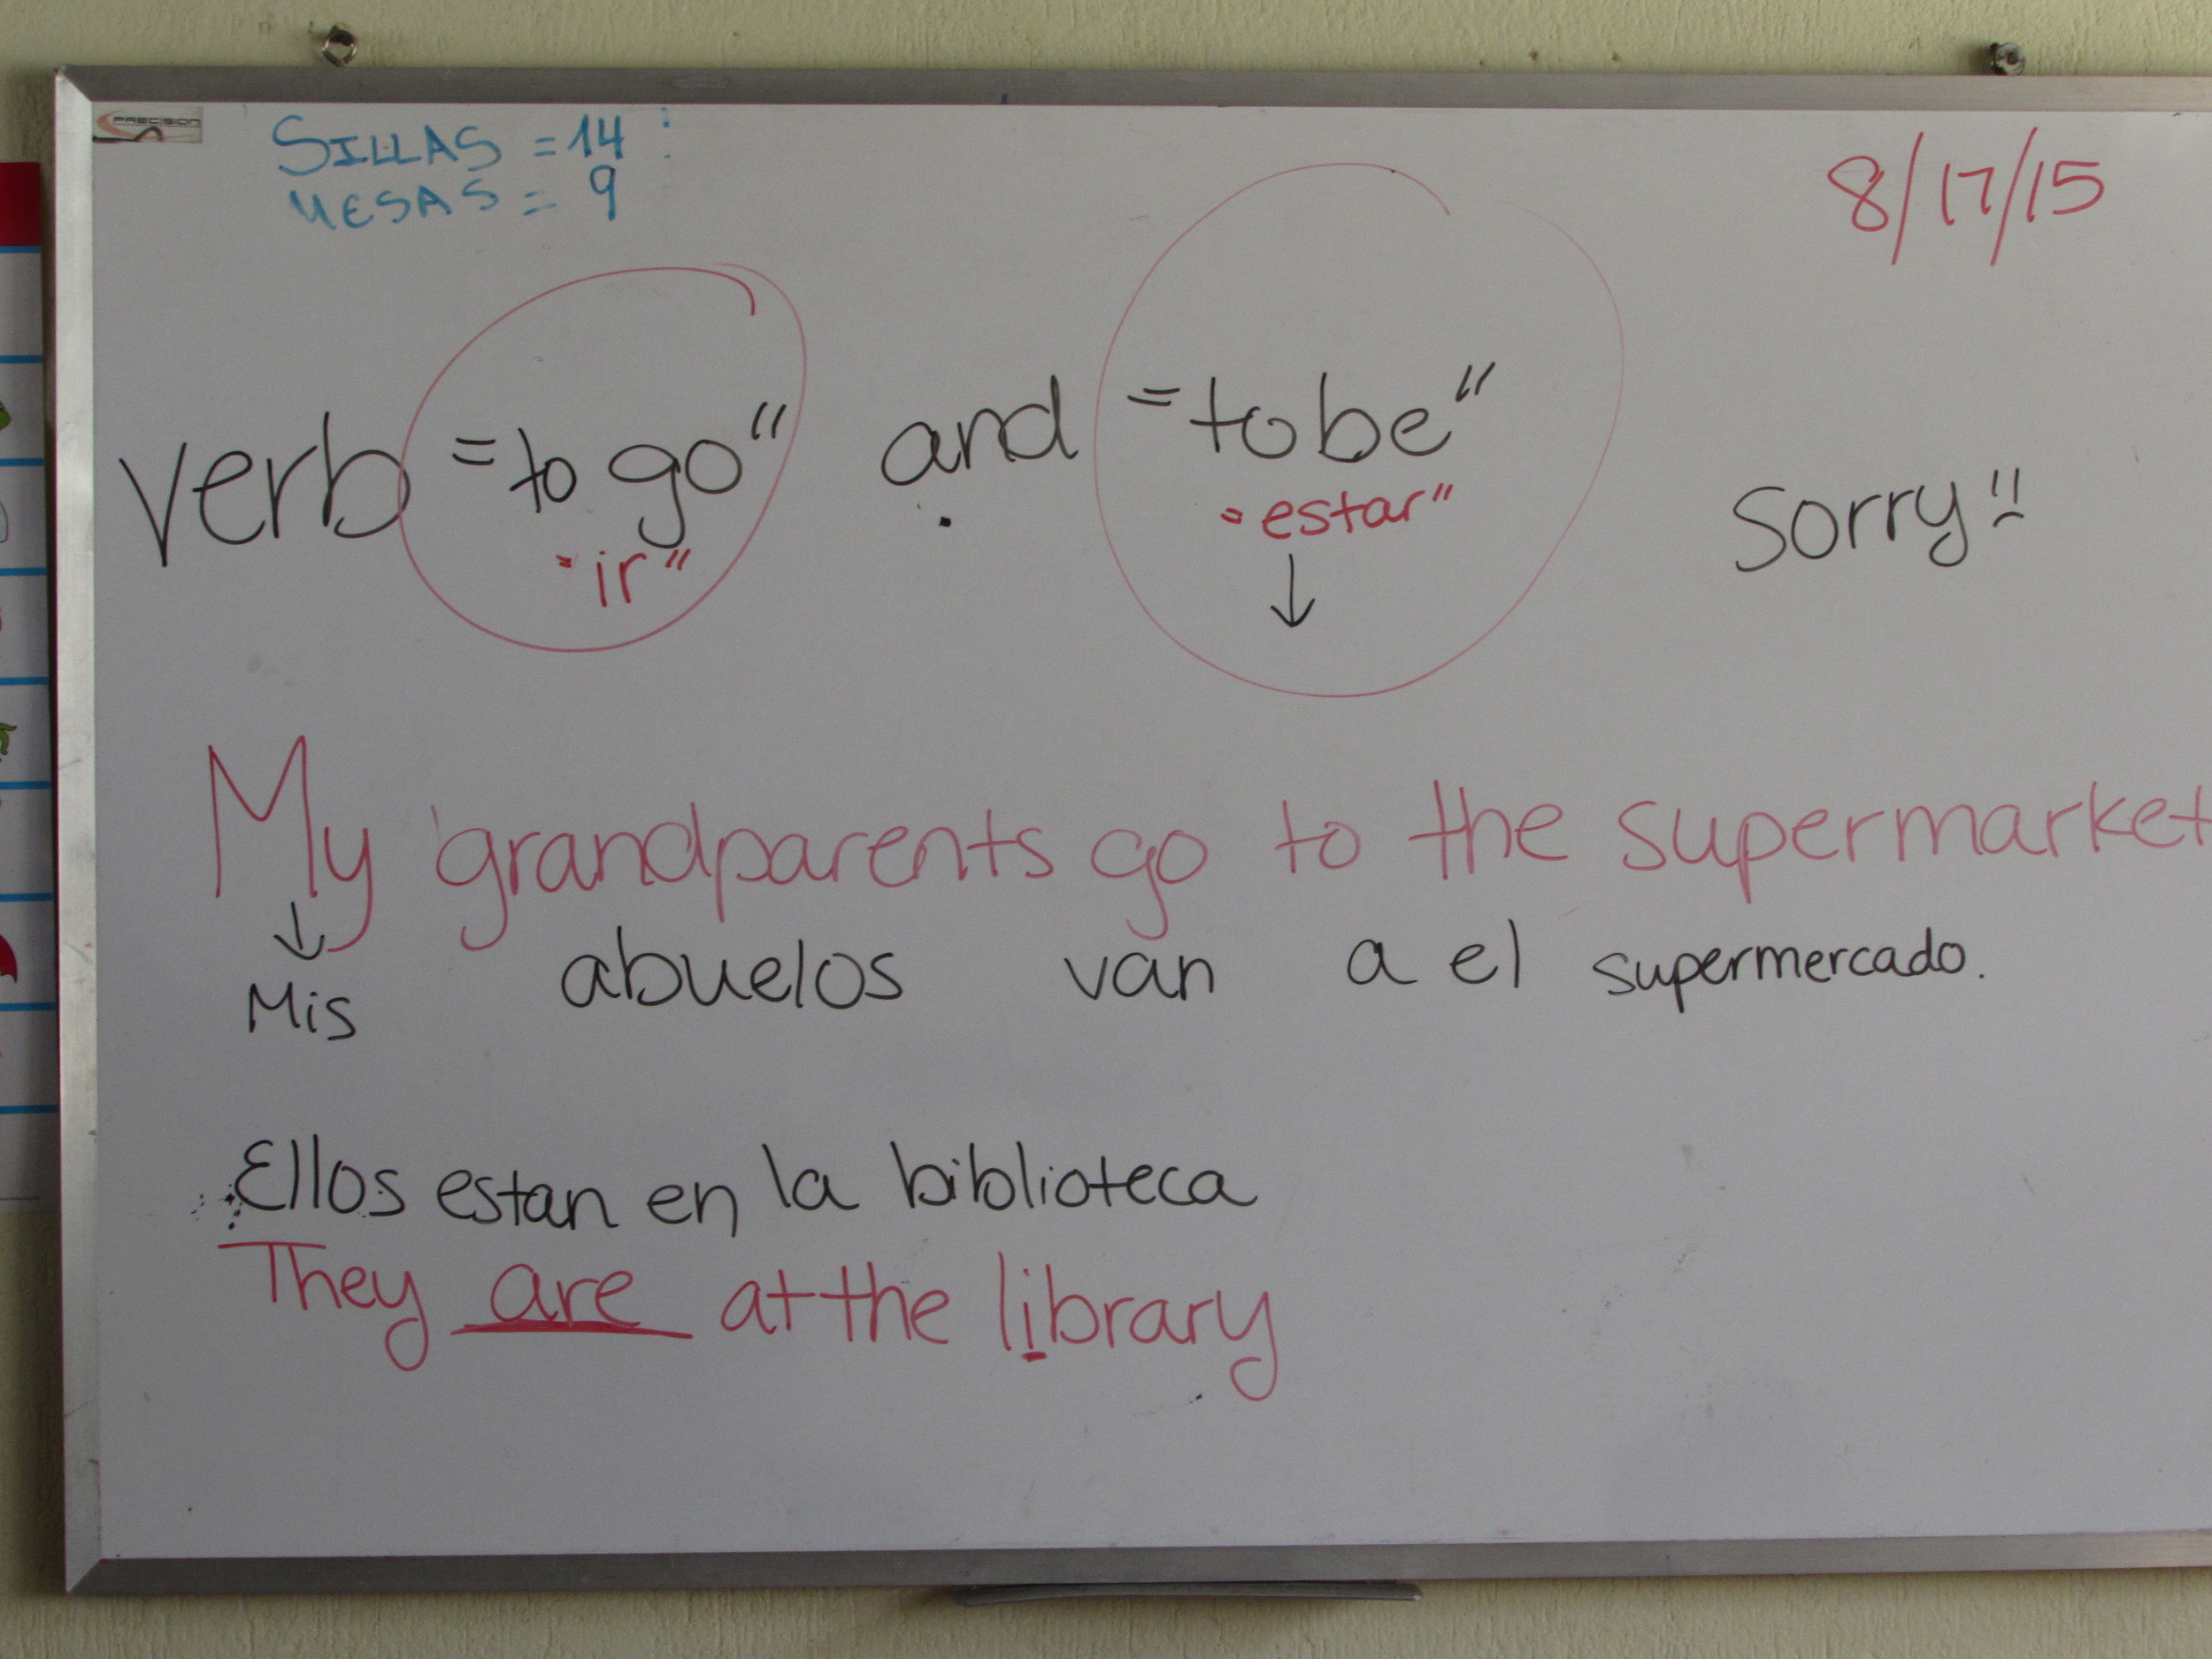 PRECISION
SILLAS = 14
MESAS = 9
8/17/15
verb "to go" and "to be"
"ir" "estar"
sorry!!
My grandparents go to the supermarket
Mis abuelos van a el supermercado.
Ellos estan en la biblioteca
They are at the library